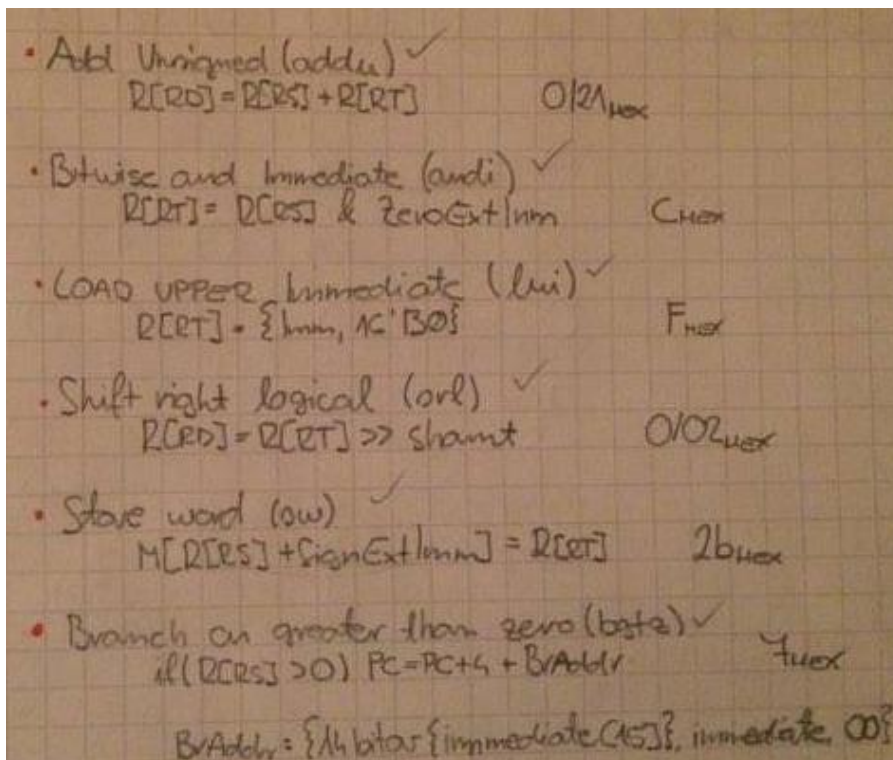 • Add Unsigned (addu) ✓
R[RD] = R[RS] + R[RT] 0/21Hex
• Bitwise and Immediate (andi) ✓
R[RT] = R[RS] & ZeroExtImm CHex
• LOAD UPPER Immediate (lui) ✓
R[RT] = {Imm, 16'B0} FHex
• Shift right logical (srl) ✓
R[RD] = R[RT] >> shamt 0/02Hex
• Store word (sw) ✓
M[R[RS] + SignExtImm] = R[RT] 2bHex
• Branch on greater than zero (bgtz) ✓
if(R[RS] > 0) PC = PC+4 + BrAddr 7Hex
BrAddr = {14 bitar {immediate[15]}, immediate, 00}